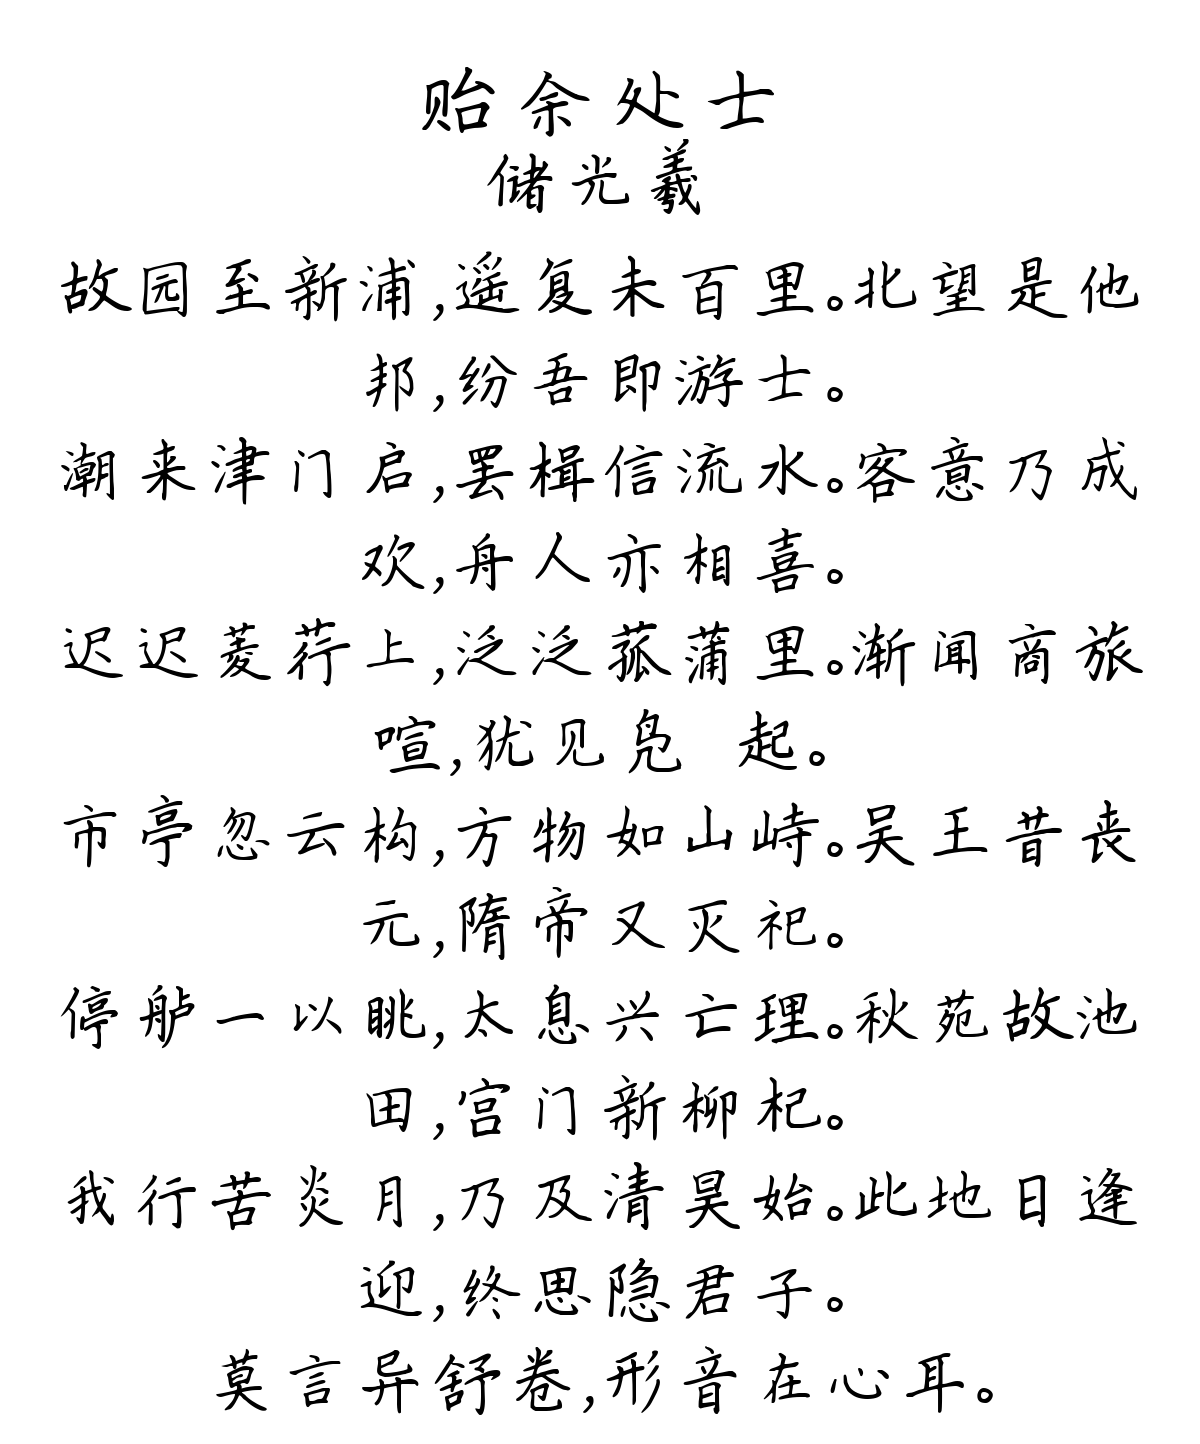 贻余处士
储光羲
故园至新浦,遥复未百里。北望是他
邦,纷吾即游士。
潮来津门启,罢楫信流水。客意乃成
欢,舟人亦相喜。
迟迟菱荇上,泛泛菰蒲里。渐闻商旅
喧,犹见凫 起。
市亭忽云构,方物如山峙。吴王昔丧
元,隋帝又灭祀。
停舻一以眺,太息兴亡理。秋苑故池
田,宫门新柳杞。
我行苦炎月,乃及清昊始。此地日逢
迎,终思隐君子。
莫言异舒卷,形音在心耳。